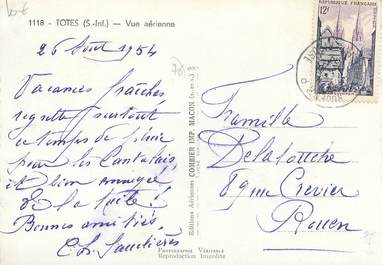 1118 - TOTES (S.-Inf.) — Vue aérienne
REPUBLIQUE FRANÇAISE
12F
26 Août 1954
Vacances fraîches
regrette surtout
ce temps de pluie
pour les Cantalais,
et bien ennuyé
de la suite !
Bonnes amitiés,
Editions Aériennes COMBIER IMP. MACON
Famille
Delafouche
89 rue Crevier
Rouen
Photographie Véritable
Reproduction Interdite